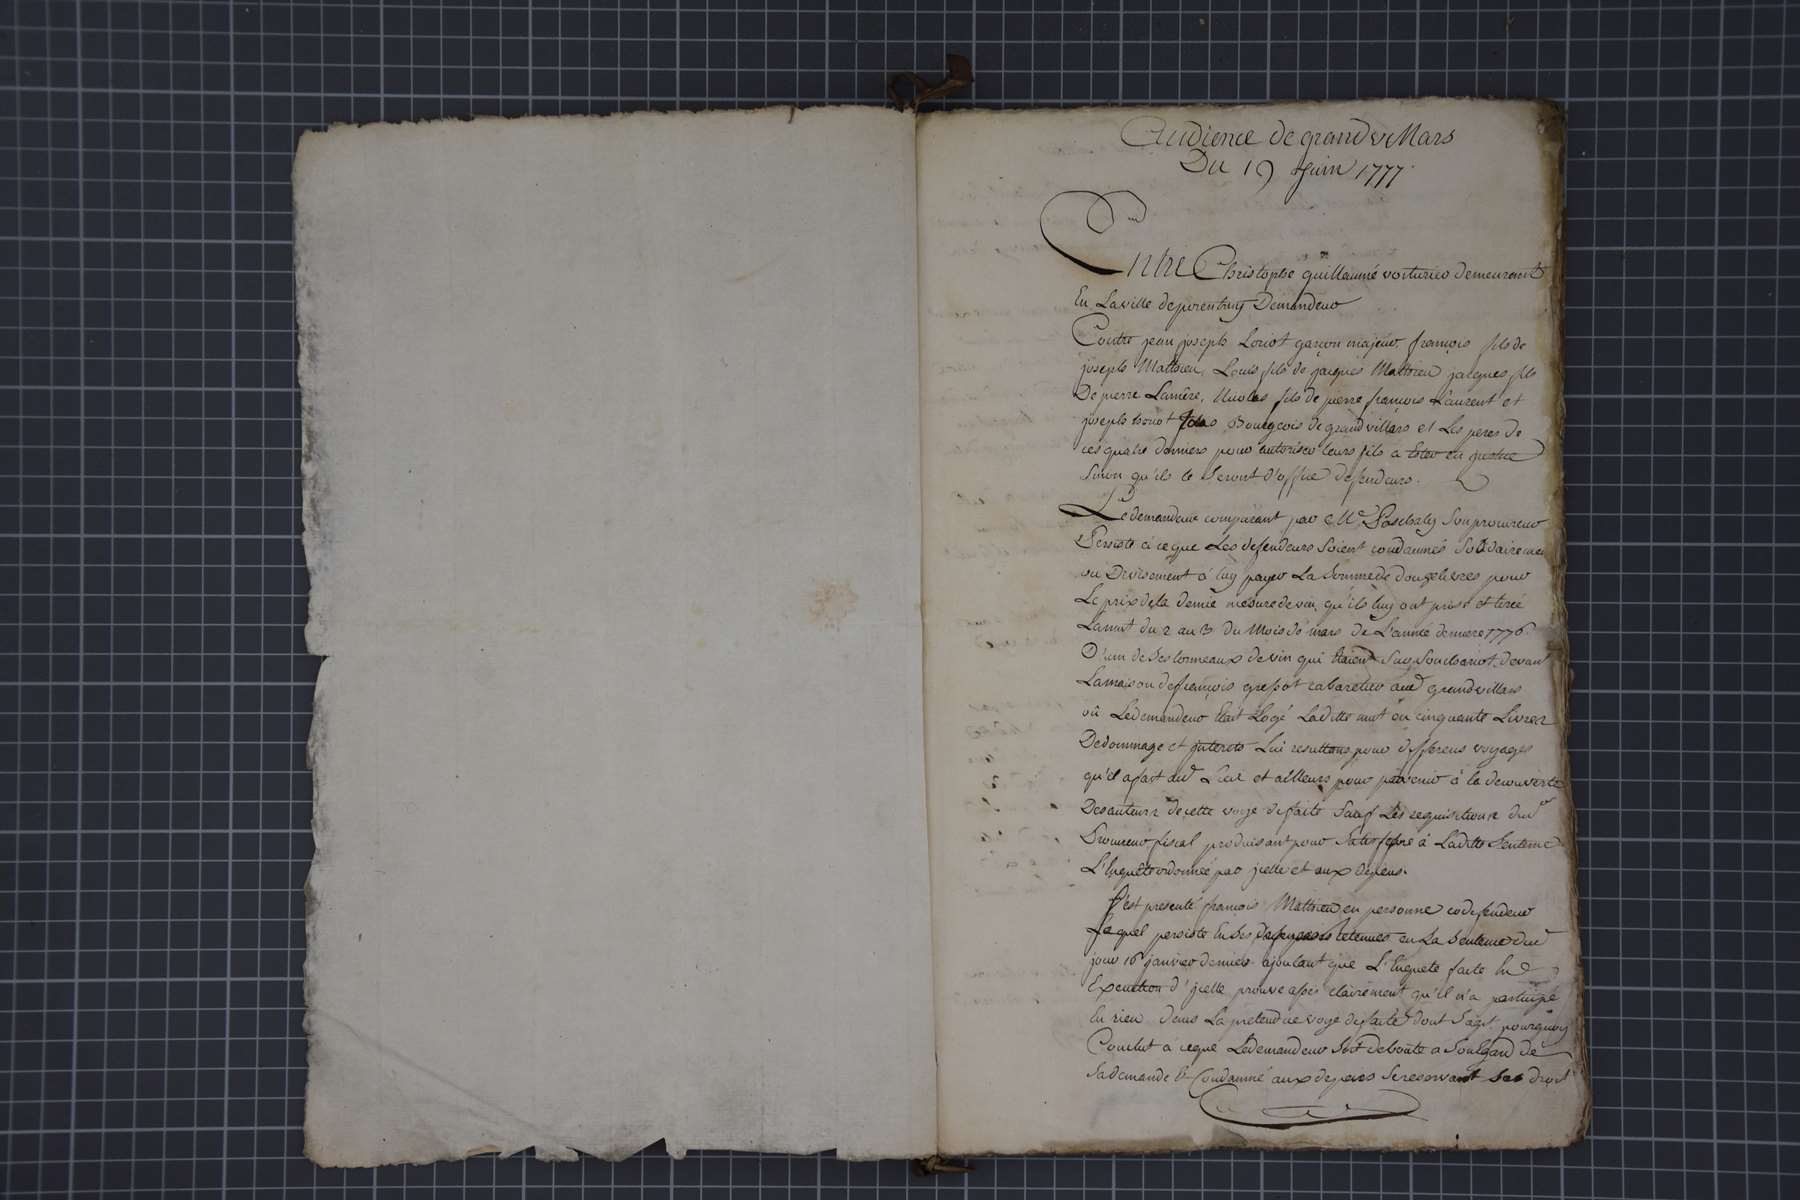 Audience de grandvillars
Du 19 Juin 1777
Entre Christophe guillaume voiturier demeurant
En La ville de porentruy Demandeur
Contre jean joseph Loriot garçon majeur françois fils de
joseph Mathieu, Louis fils de jacques Mathieu jacques fils
De pierre Lamere, Nicolas fils de pierre françois Laurent et
joseph tous Bourgeois de grandvillars et Les peres de
ces quatre derniers pour autoriser leurs fils a Ester en justice
Sinon qu'ils le Seront d'office defendeurs.
Le demandeur comparant par Me Paschaly Son procureur
Persiste à ce que Les defendeurs Soient condamnés Solidairement
ou Divisement à luy payer La Somme de douze livres pour
Le prix de la demie mesure de vin qu'ils luy ont prise et tirée
La nuit du 2 au 3 du Mois de mars de L'année derniere 1776
D'un de Ses tonneaux de vin qui étaient Sur Son chariot devant
La maison de françois gressot cabaretier aud grandvillars
où Le demandeur était Logé Laditte nuit en cinquante Livres
De dommage et interets Lui resultans pour differens voyages
qu'il a fait aud Lieu et ailleurs pour parvenir à la decouverte
Des auteurs de cette voye de faite Sauf Les requisitions du
Procureur fiscal produisant pour Satisfaire à Laditte Sentence
L'Enquête ordonnée par jcelle et aux dépens.
S'est presenté françois Mathieu en personne codefendeur
Lequel persiste En Ses defenses retenues en La Sentence du
jour 16 janvier dernier ajoutant que L'Enquete faite En
Execution d'jcelle prouve assés clairement qu'il n'a participé
En rien dans La pretendue voye de faite dont S'agit, pourquoy
Conclut à ce que Le demandeur Soit deboute a Son Egard de
Sa demande & Condamné aux depens Se reservant Ses droit